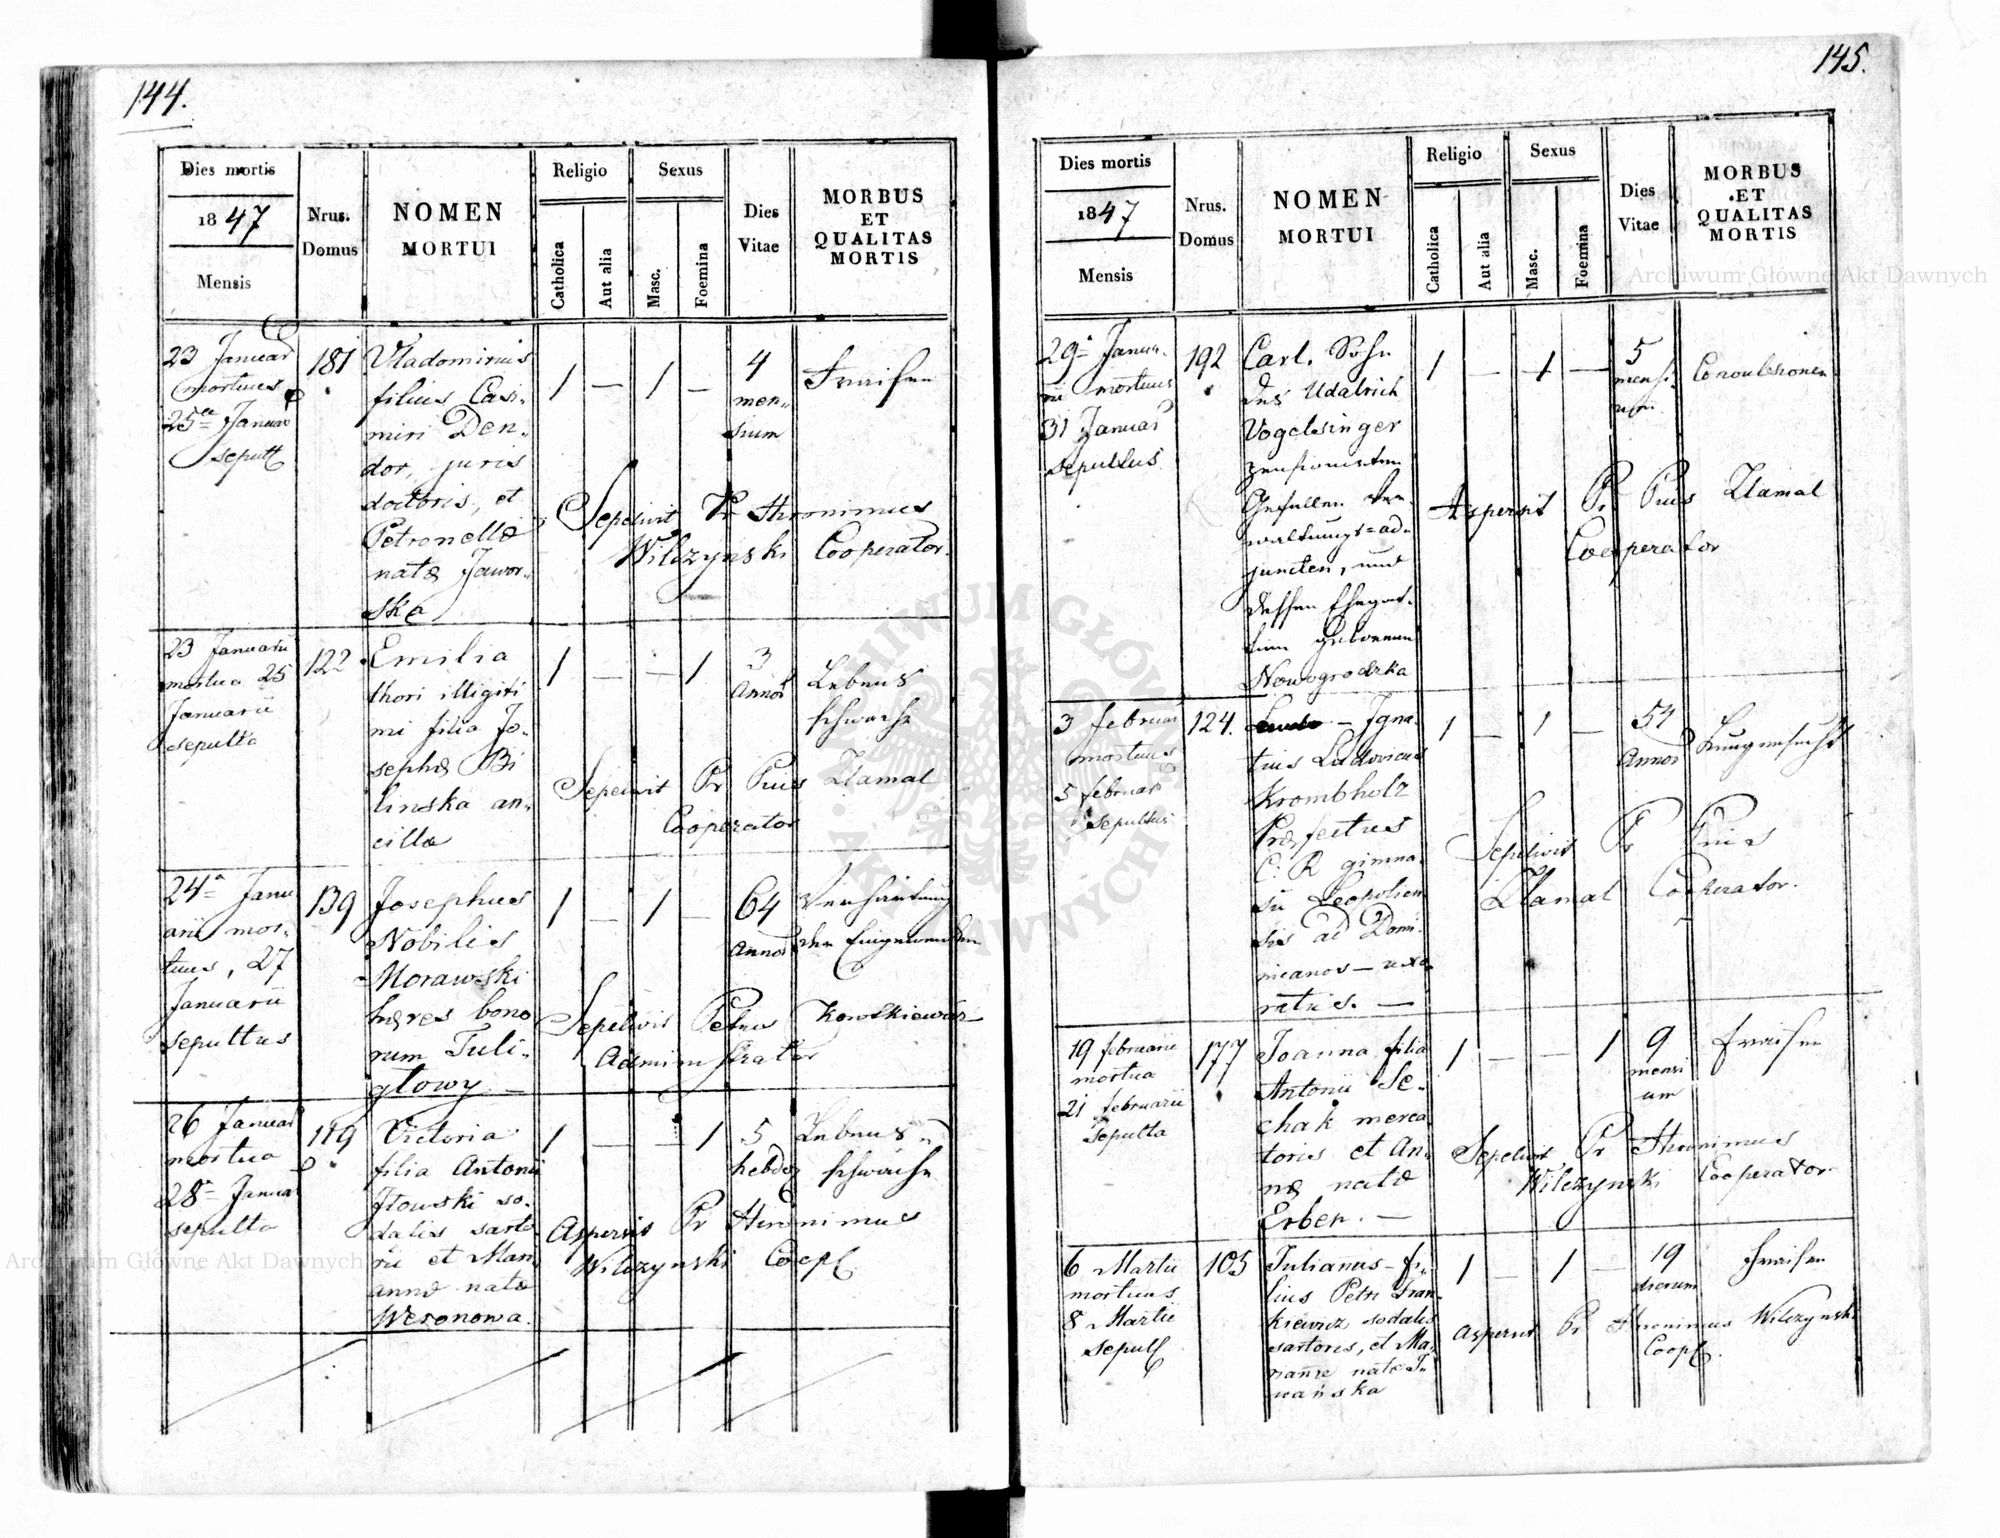 144.
Dies mortis
1847
Mensis
Nrus.
Domus
NOMEN
MORTUI
Religio
Catholica
Aut alia
Sexus
Masc.
Foemina
Dies
Vitae
MORBUS
ET
QUALITAS
MORTIS
23 Januar
mortuus
25ta Januar
sepult
181
Vladomirus
filius Casi-
miri Den-
dor, juris
doctoris, et
Petronellæ
natæ Jawor-
ska
1 — 1 —
4
men-
sium
Fraisen
Sepelivit Pr Hironimus
Wilczynski Cooperator.
23 Januarii
mortua 25
Januarii
sepulta
122
Emilia
thori illigiti
mi filia Jo-
sephæ Bi
linska an-
cillæ
1 — — 1
3
Annor
Lebens
schwäche
Sepelivit Pr Pius Llamal
Cooperator
24a Janu
arii mor-
tuus, 27
Januarii
sepultus
139
Josephus
Nobilis
Morawski
hæres bono
rum Tuli-
głowy. —
1 — 1 —
64
Annor
Verhärtung
der Eingeweiden
Sepelivit Petrus
Administrator
26 Januar
mortua
28a Januar
sepulta
119
Victoria
filia Antonii
Iłowski so-
dalis sarto
rii et Mari
annæ natæ
Weronowa.
1 — — 1
5
hebdo
Lebens-
schwäche
Aspersit Pr Hironimus
Wilczynski Coop.
145.
Dies mortis
1847
Mensis
Nrus.
Domus
NOMEN
MORTUI
Religio
Catholica
Aut alia
Sexus
Masc.
Foemina
Dies
Vitae
MORBUS
ET
QUALITAS
MORTIS
29a Janua-
rii mortuus
31 Januar
sepultus
192
Carl. Sohn
des Udalrich
Vogelsinger
pensionirten
Gefällen Ver-
waltungs=ad-
juncten, und
dessen Ehegat-
tinn geborenen
Nowogrodzka
1 — 1 —
5
mensi
um
Convulsionen
Aspersit Pr Pius Llamal
Cooperator
3 februar
mortuus
5 februar
sepultus
124.
— Igna-
tius Ludovicus
Krombholz
Præfectus
C. R gimna-
sii Leopolien
sis ad Domi-
nicanos — uxo
ratus. —
1 — 1 —
54
Annor
Lungensucht
Sepelivit Pr Pius
Llamal Cooperator.
19 februarii
mortua
21 februarii
sepulta
177
Joanna filia
Antonii Se-
chak merca
toris et An-
næ natæ
Erben. —
1 — — 1
9
mensi
um
Fraisen
Sepelivit Pr Hironimus
Wilczynski Cooperator
6 Martii
mortuus
8 Martii
sepult
105
Julianus — fi-
lius Petri Fran-
kiewicz sodalis
sartoris, et Ma-
riannæ natæ I-
wańska
1 — 1 —
19
dierum
Fraisen
Aspersit Pr Hironimus Wilczynski
Coop.
Archiwum Główne Akt Dawnych
Archiwum Główne Akt Dawnych
ARCHIWUM GŁÓWNE
AKT DAWNYCH